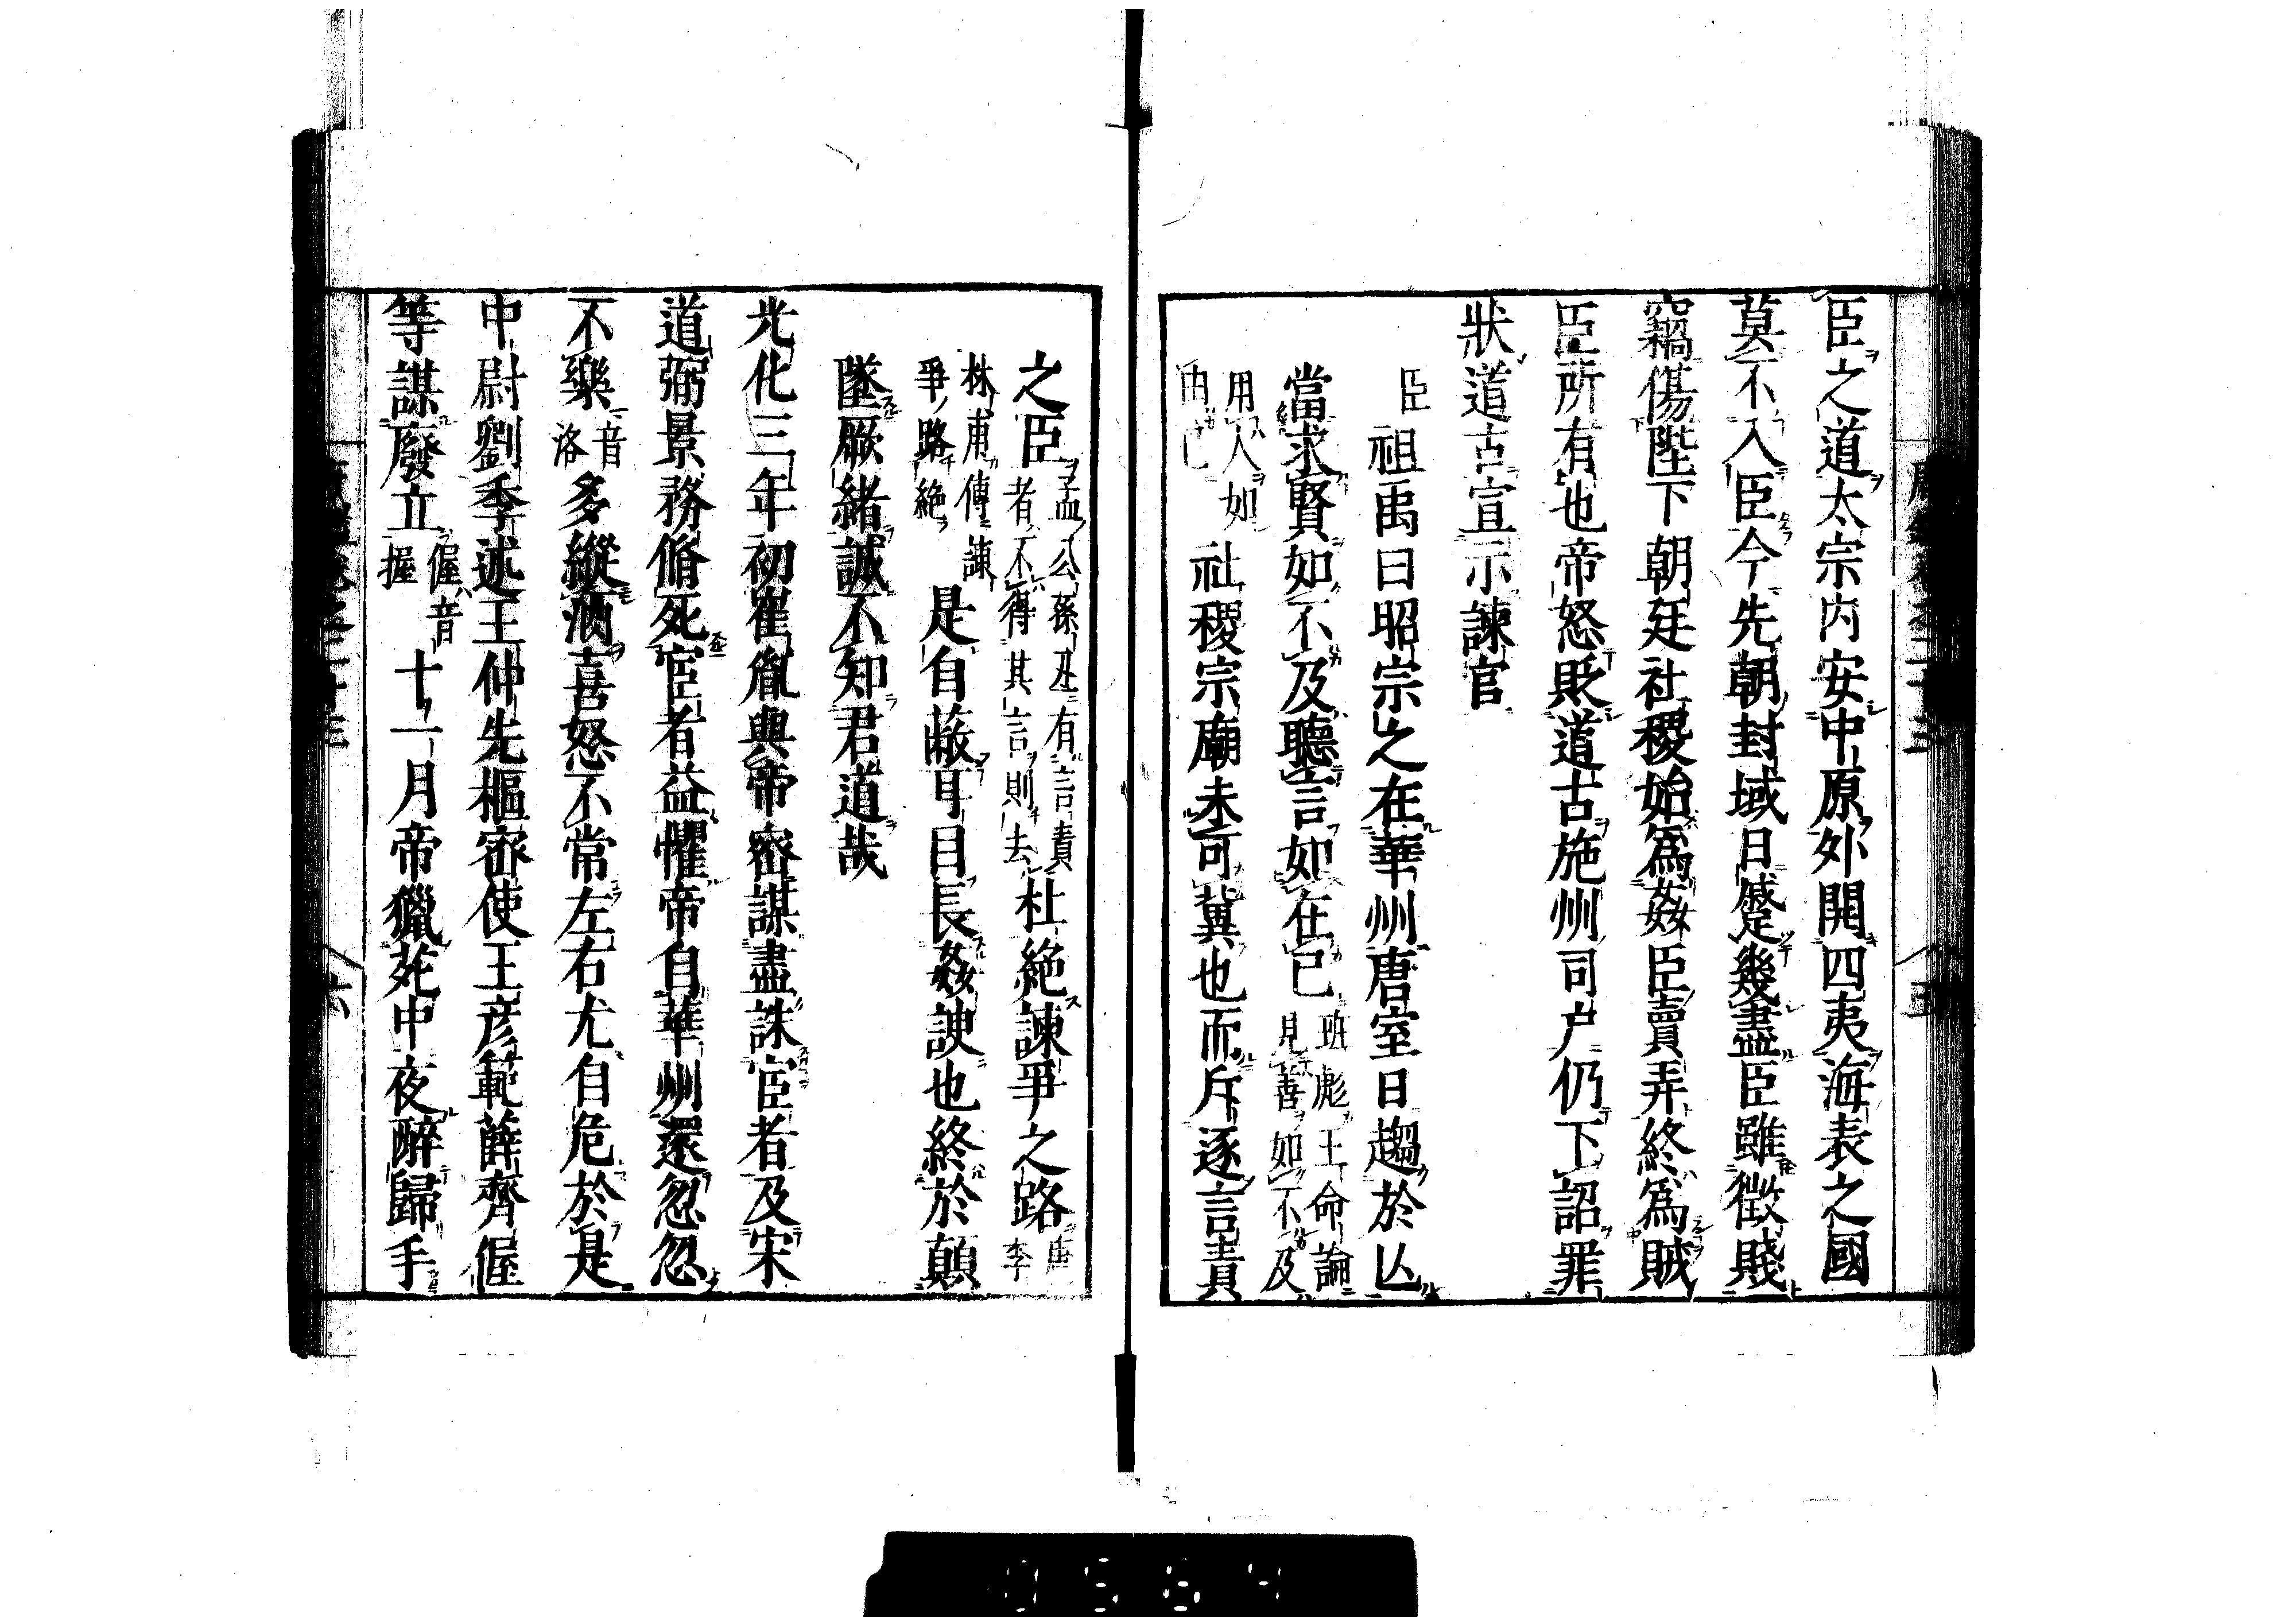 臣之道太宗内安中原外開四夷海表之國
莫不入臣今先朝封域日蹙幾盡臣雖微賤
竊傷陛下朝廷社稷始爲姦臣賣弄終爲賊
臣所有也帝怒貶道古施州司户仍下詔罪
狀道古宣示諫官
臣祖禹曰昭宗之在華州唐室日趨於亾
當求賢如不及聽言如在已班彪王命論
見善如不及
用人如
由已
社稷宗廟未可冀也而斥逐言責
之臣孟公孫丑有言責
者不得其言則去
杜絶諫爭之路唐
李
林甫傳諫
爭路絶
是自蔽耳目長姦諛也終於顛
墜厥緒誠不知君道哉
光化三年初崔胤與帝密謀盡誅宦者及宋
道弼景務脩死宦者益懼帝自華州還忽忽
不樂音
洛
多縱酒喜怒不常左右尤自危於是
中尉劉季述王仲先樞密使王彦範薛齊偓
等謀廢立偓音
握
十一月帝獵苑中夜醉歸手